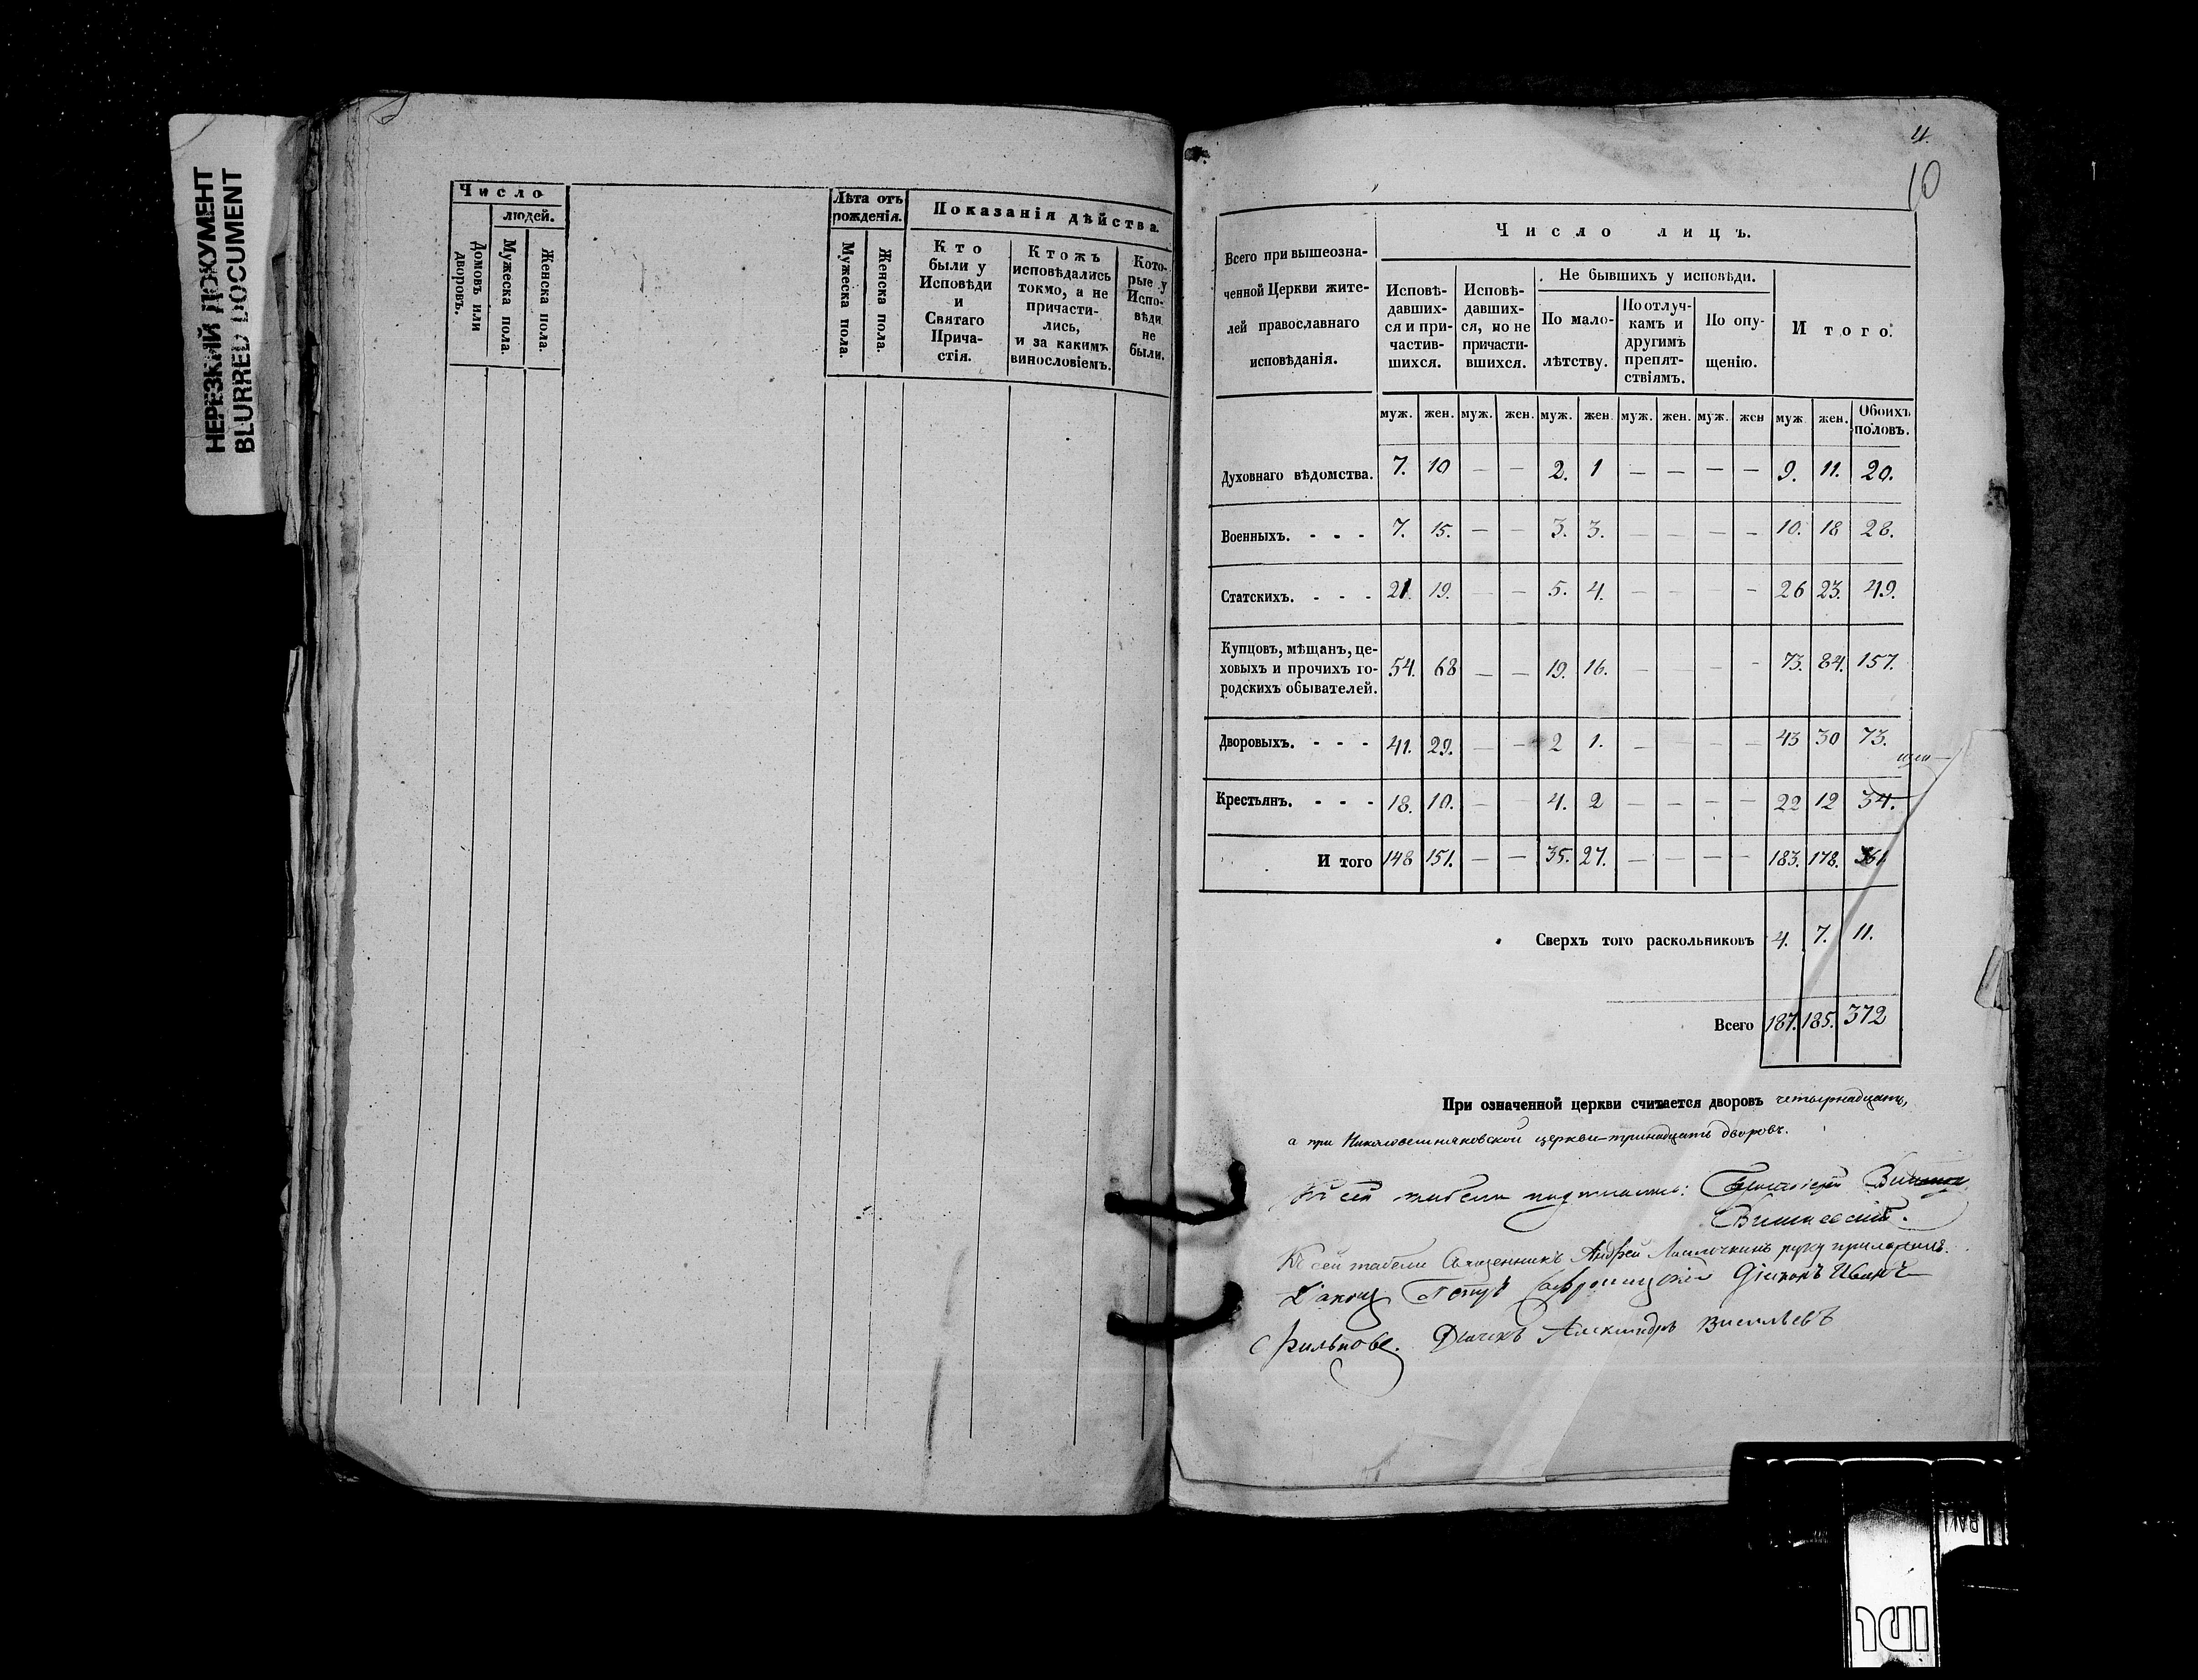 НЕРЕЗКИЙ ДОКУМЕНТ
BLURRED DOCUMENT
Число
людей.
Домовъ или дворовъ.
Мужеска пола.
Женска пола.
Лѣта отъ рожденія.
Мужеска пола.
Женска пола.
Показанія дѣйства.
Кто
были у
Исповѣди
и
Святаго
Прича-
стія.
Ктожъ
исповѣдались
токмо, а не
причасти-
лись,
и за какимъ
винословіемъ.
Кото-
рые у
Испо-
вѣди
не
были.
4.
10
Всего при вышеозна-
ченной Церкви жите-
лей православнаго
исповѣданія.
Число лицъ.
Исповѣ-
давших-
ся и при-
частив-
шихся.
Исповѣ-
давших-
ся, но не
причасти-
вшихся.
Не бывшихъ у исповѣди.
По мало-
лѣтству.
По отлуч-
камъ и
другимъ
препят-
ствіямъ.
По опу-
щенію.
И того.
муж. жен. муж. жен. муж. жен. муж. жен. муж. жен муж. жен. Обоихъ половъ.
Духовнаго вѣдомства. 7. 10 — — 2. 1 — — — — 9. 11. 20.
Военныхъ. - - - 7. 15. — — 3. 3. — — — — 10. 18 28.
Статскихъ. - - - 21. 19. — — 5. 4. — — — — 26 23. 49.
Купцовъ, мѣщанъ, це-
ховыхъ и прочихъ го-
родскихъ обывателей. 54. 68 — — 19. 16. — — — — 73. 84. 157.
Дворовыхъ. - - - 41. 29. — — 2 1. — — — — 43 30 73.
Крестьянъ. - - - 18. 10. — — 4. 2 — — — — 22 12 34.
И того 148 151. — — 35. 27. — — — — 183. 178. 361
Сверхъ того раскольниковъ 4. 7. 11.
Всего 187. 185. 372
При означенной церкви считается дворовъ четырнадцать,
а при церкви — тринадцать дворовъ.
Къ сей табели
Къ сей табели Священникъ Андрей руку приложилъ.
Петръ Діаконъ Иванъ
Дьячекъ Александръ Васильевъ